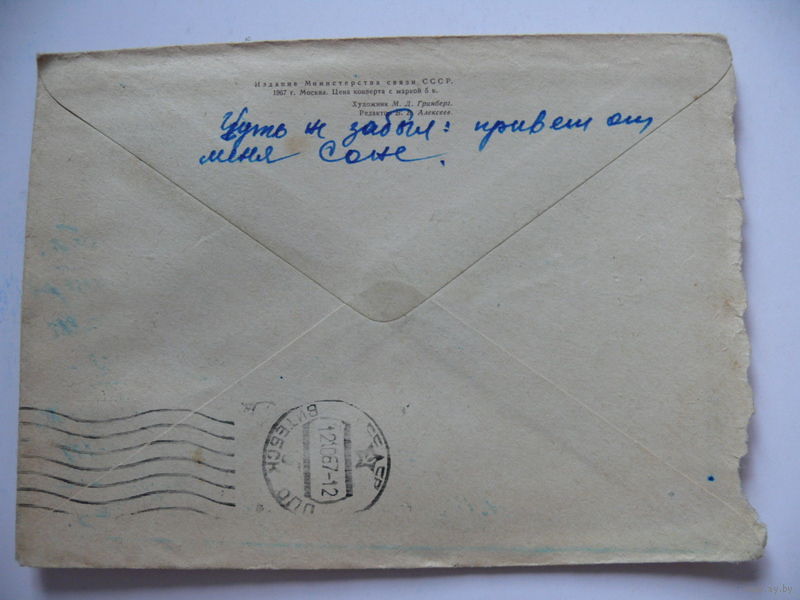 Издание Министерства связи СССР.
1967 г. Москва. Цена конверта с маркой 6 к.
Художник М. Д. Гринберг.
Редактор В. Алексеев.
Чуть не забыл: привет от
меня Соне.
ВИТЕБСК
СССР